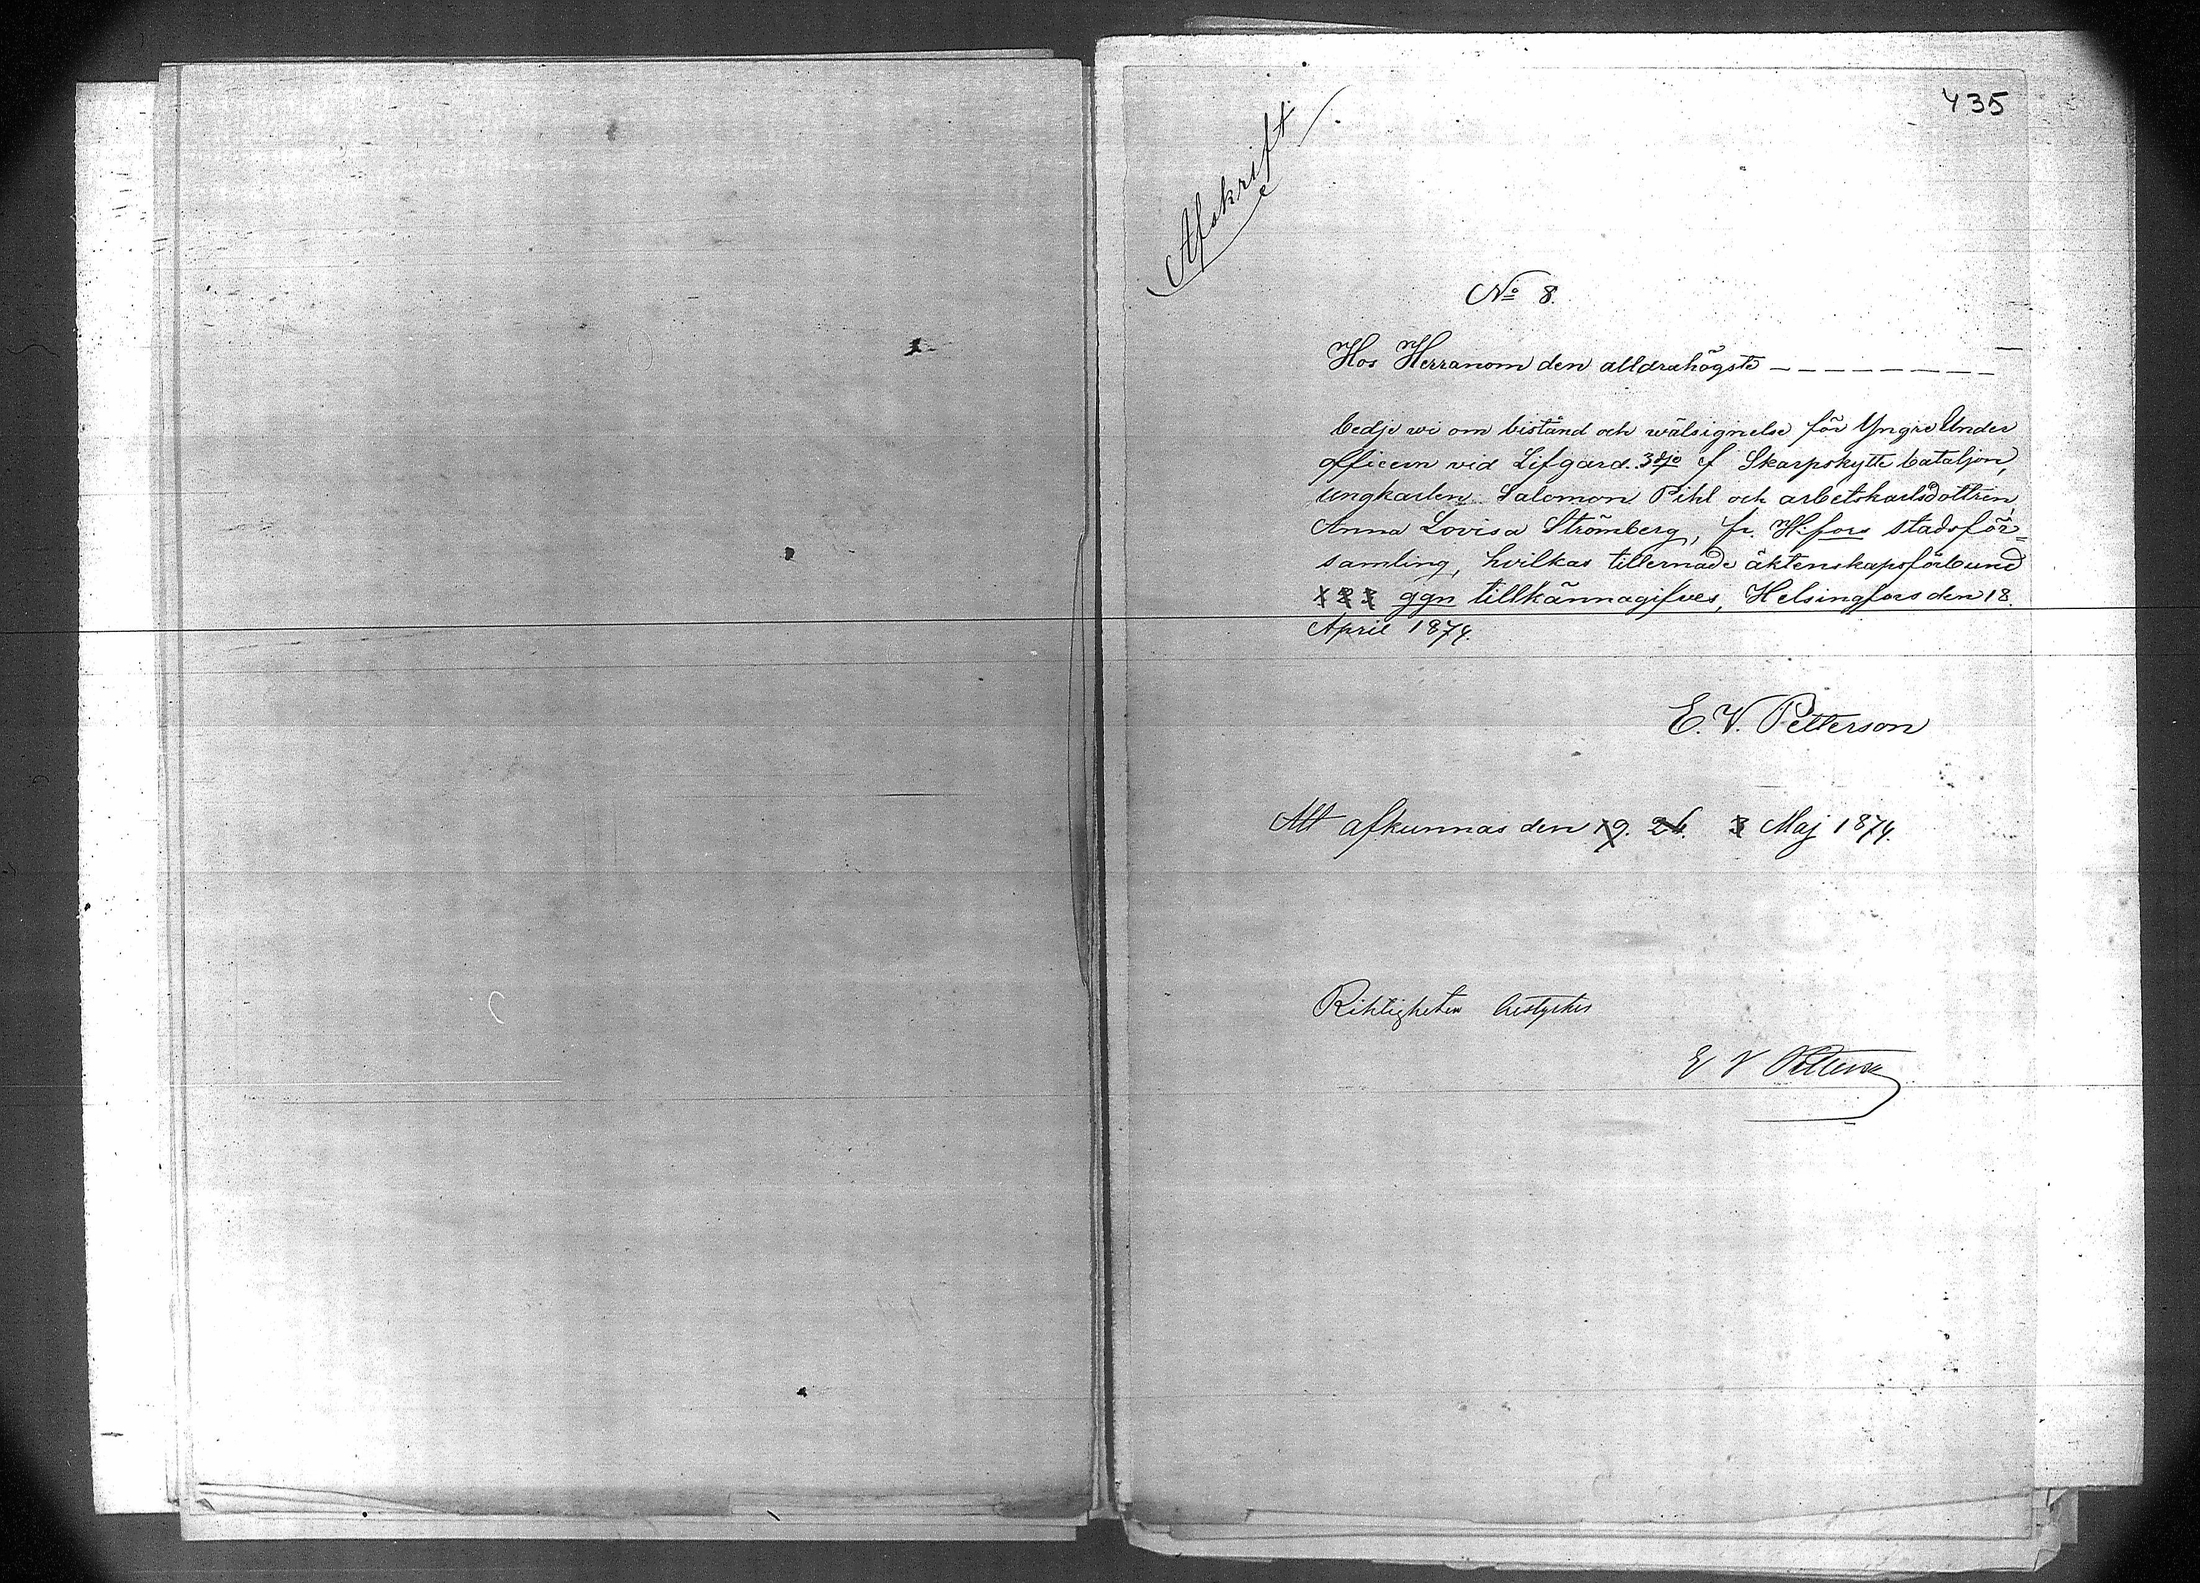 435
Afskrift
No 8.
Hos Herranom den alldrahögste
bedje wi om bistånd och wälsignelse för Yngre Under
officern vid Lifgard. 3dje f Skarpskytte bataljon,
ungkarlen Salomon Pihl och arbetskarlsdottren,
Anna Lovisa Strömberg, fr. H:fors stadsför=
samling, hvilkas tillernade äktenskapsförbund
1 2 3 ggn tillkännagifves, Helsingfors den 18.
April 1874.
E. V. Petterson
Att afkunnas den 19. 26. 3 Maj 1874.
Riktigheten bestyrker
E V Petterson